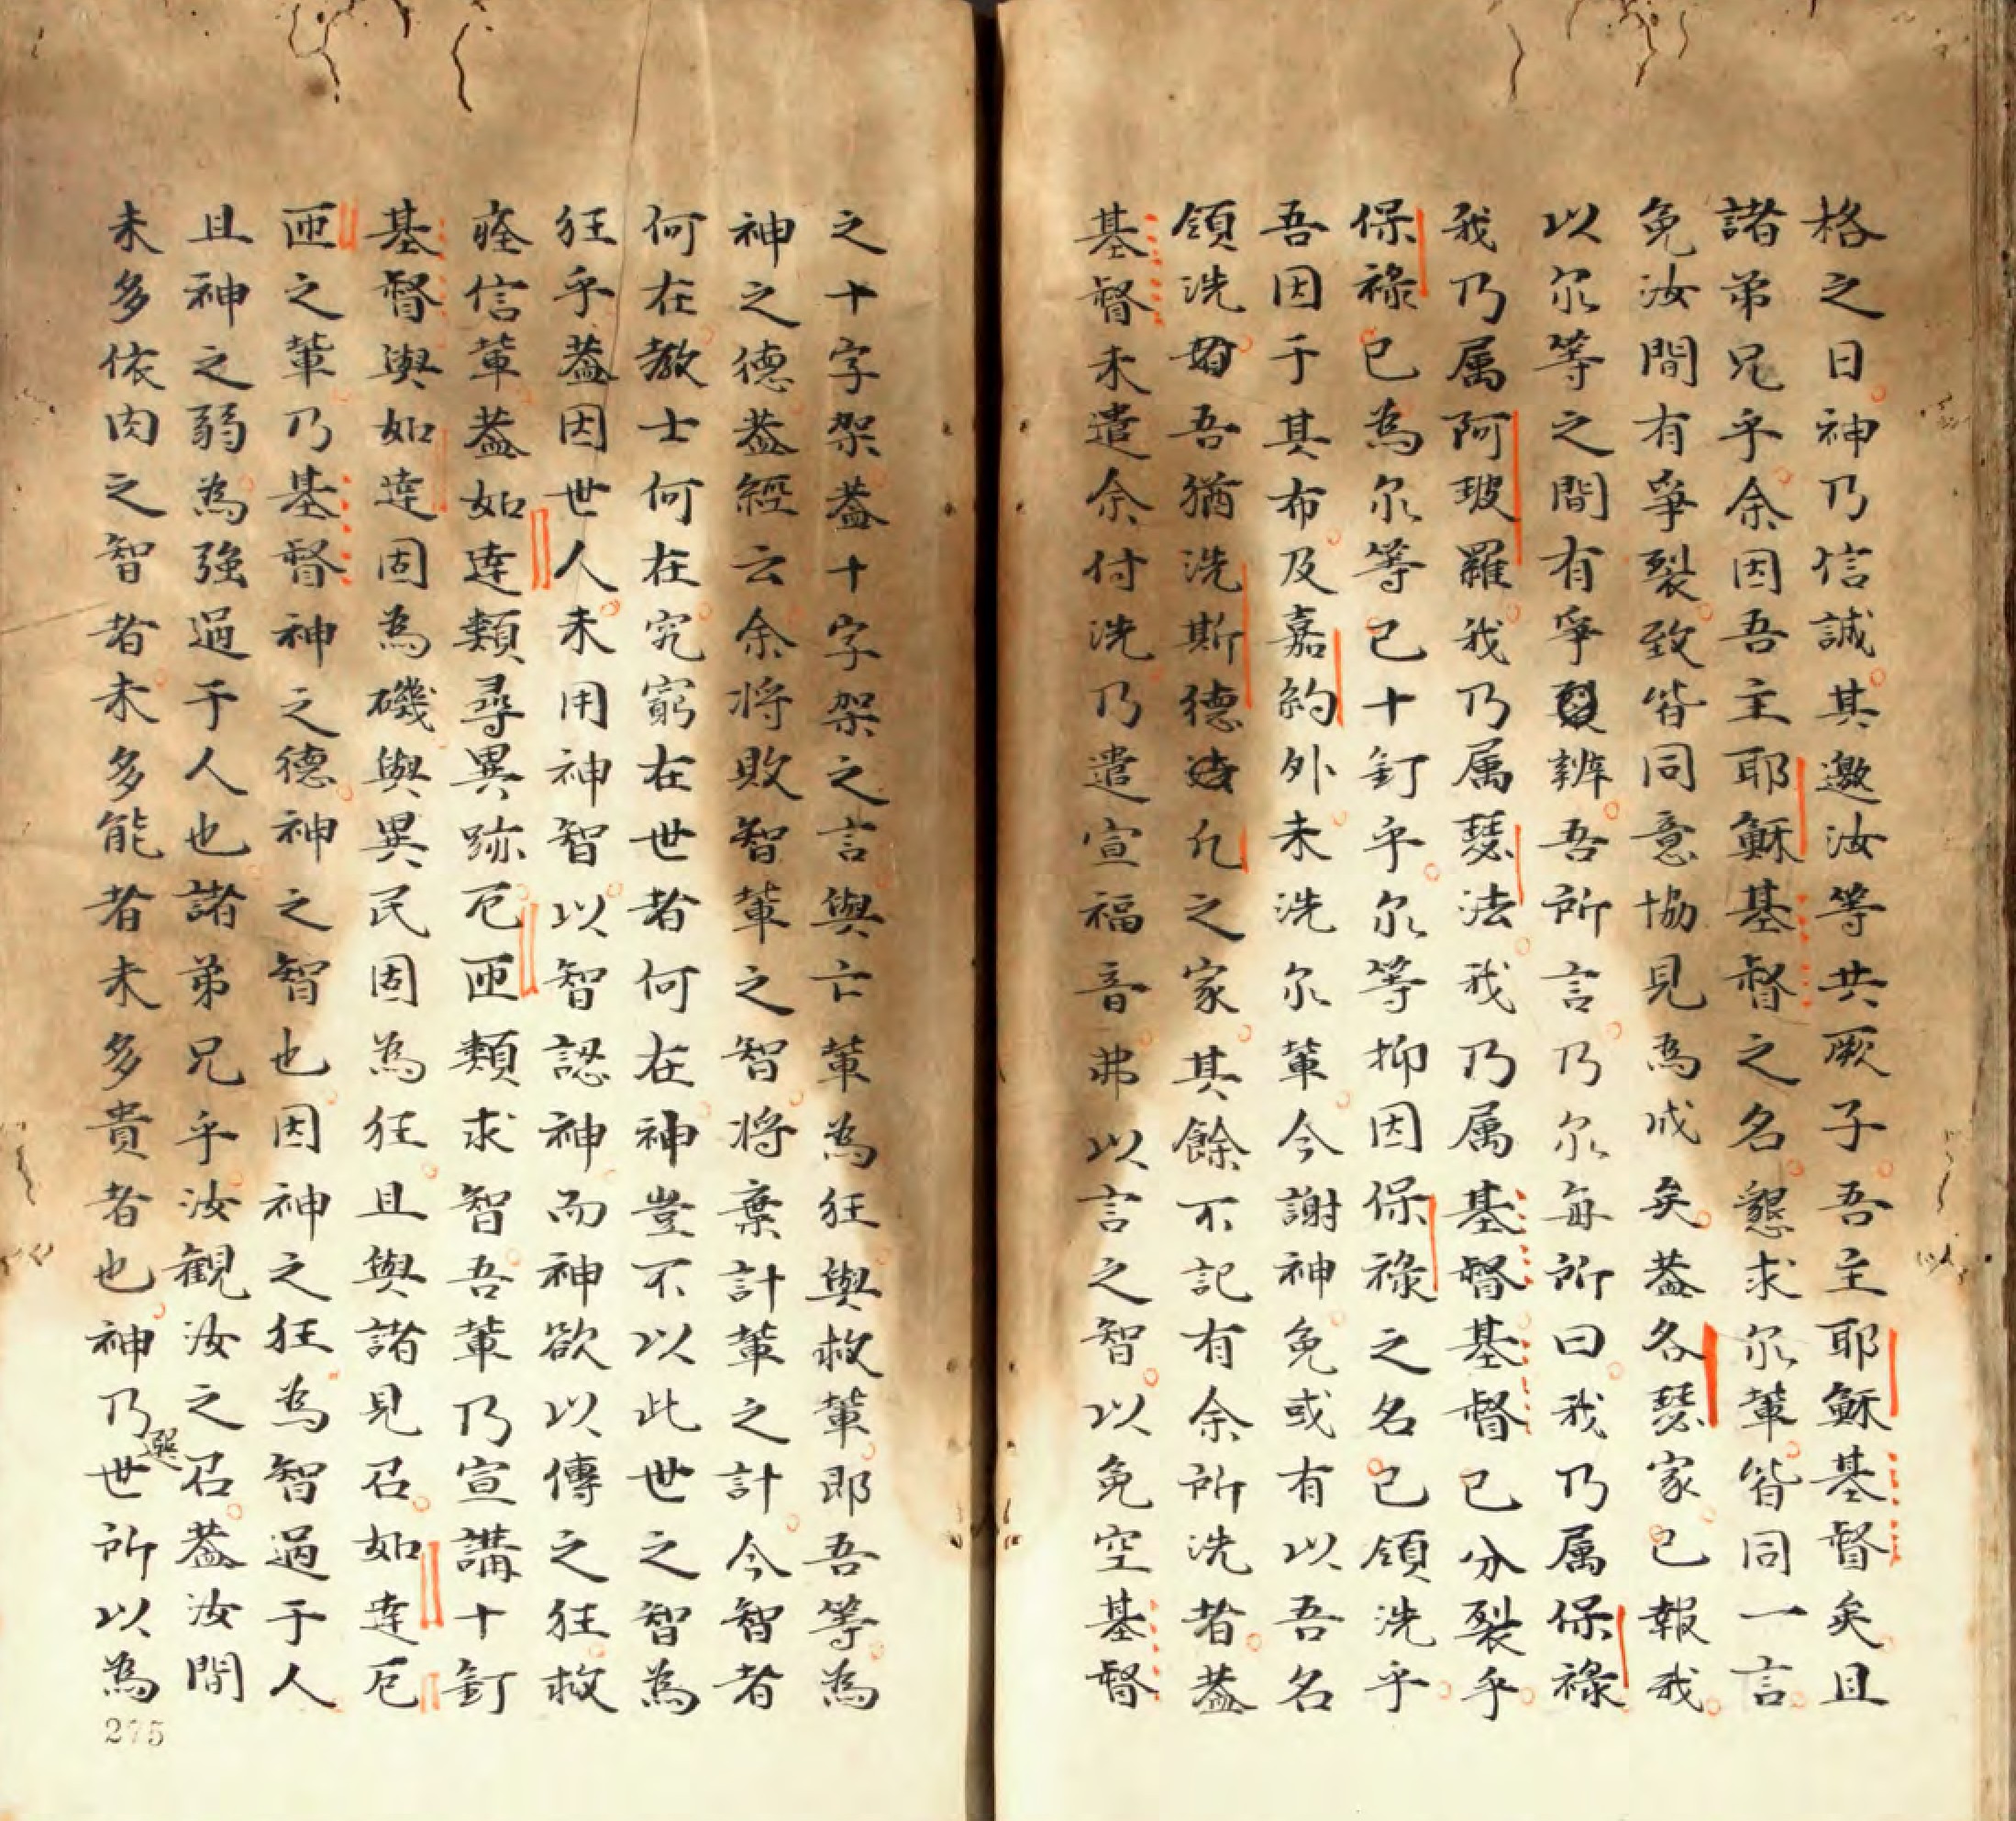 格之日神乃信誠其邀汝等共厥子吾主耶穌基督矣且
諸弟兄乎余因吾主耶穌基督之名懇求尔輩皆同一言
免汝間有爭裂致皆同意協見為成矣葢各瑟家已報我
以尔等之間有爭辨吾所言乃尔每所曰我乃属保祿
我乃属阿玻羅我乃属瑟法我乃属基督基督已分裂乎
保祿已為尔等已十釘乎尔等抑因保祿之名已領洗乎
吾因于其布及嘉約外未洗尔輩今謝神免或有以吾名
領洗者吾猶洗斯德法氿之家其餘不記有余所洗者葢
基督未遣余付洗乃遣宣福音弗以言之智以免空基督
之十字架葢十字架之言與亡輩為狂與救輩即吾等為
神之德葢經云余将敗智輩之智将棄計輩之計今智者
何在教士何在究窮在世者何在神豈不以此世之智為
狂乎葢因世人未用神智以智認神而神欲以傳之狂救
痊信輩葢如達類尋異跡厄匝類求智吾輩乃宣講十釘
基督與如達固為磯與異民固為狂且與諸見召如達厄
匝之輩乃基督神之德神之智也因神之狂為智過于人
且神之弱為強過于人也諸弟兄乎汝觀汝之召葢汝間
未多依肉之智者未多能者未多貴者也神乃選世所以為
275